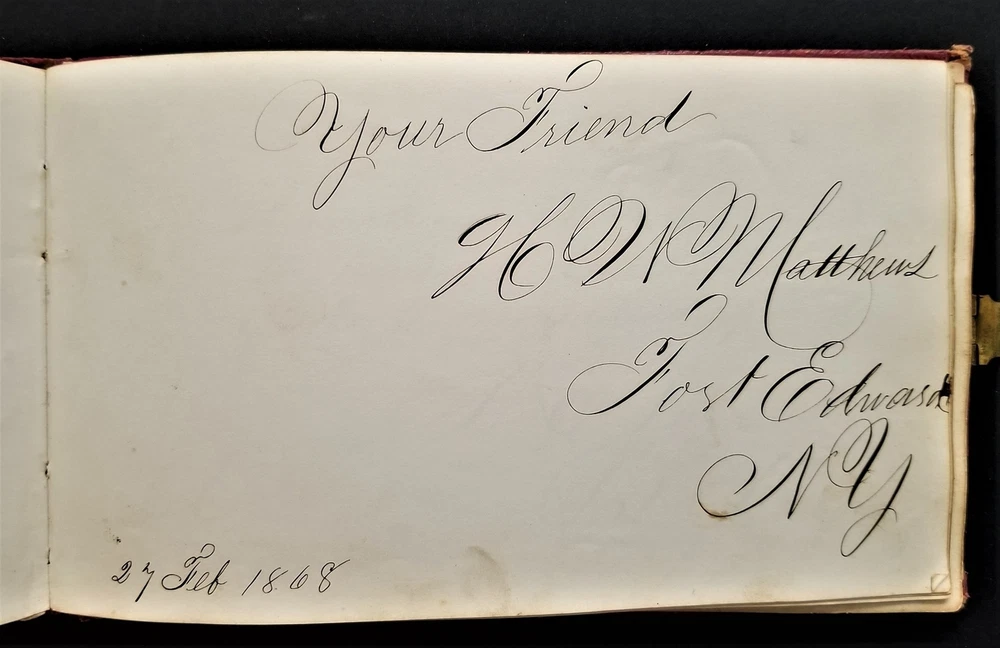 Your Friend
H W Matthews
Fort Edward
N Y
27 Feb 1868